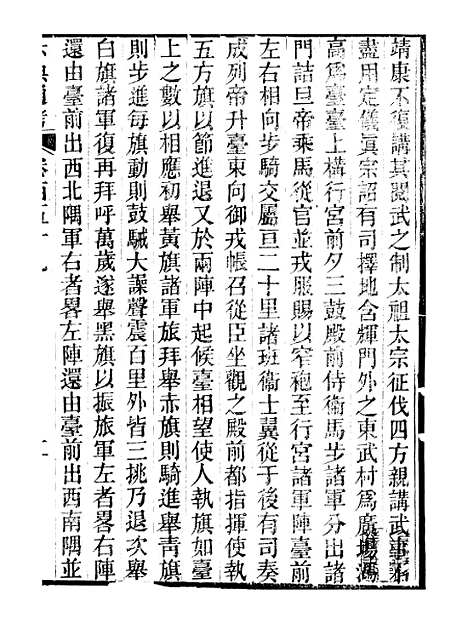 靖康不復講其閱武之制太祖太宗征伐四方親講武事
盡用定儀眞宗詔有司擇地含輝門外之東武村爲廣場
高爲臺臺上構行宮前夕三鼓殿前侍衞馬步諸軍分出諸
門詰旦帝乘馬從官並戎服賜以窄袍至行宮諸軍陣臺前
左右相向步騎交屬亘二十里諸班衞士翼從于後有司奏
成列帝升臺東向御戎帳召從臣坐觀之殿前都指揮使執
五方旗以節進退又於兩陣中起候臺相望使人執旗如臺
上之數以相應初舉黃旗諸軍旅拜舉赤旗則騎進舉靑旗
則步進每旗動則鼓駴大譟聲震百里外皆三挑乃退次舉
白旗諸軍復再拜呼萬歲遂舉黑旗以振旅軍左者畧右陣
還由臺前出西北隅軍右者畧左陣還由臺前出西南隅並